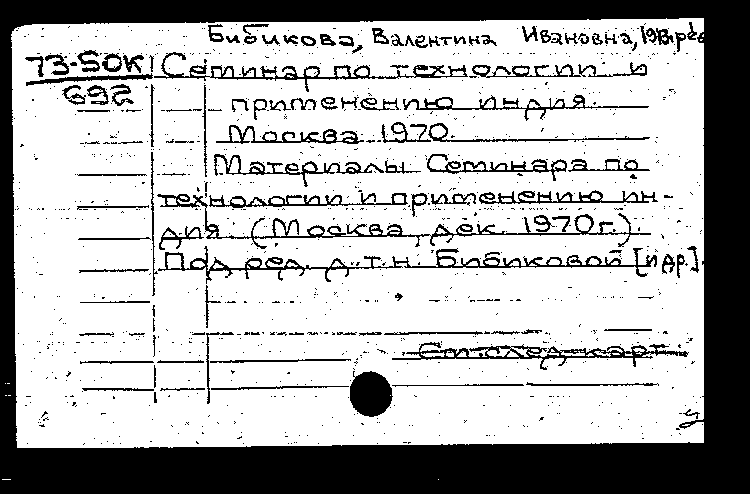 Бибикова, Валентина Ивановна,
73-SOK Семинар по технологии и
692 применению индия.
Москва 1970.
Материалы Семинара по
технологии и применению ин-
дия. (Москва, дек. 1970г.).
Под ред. д.т.н. Бибиковой [и др.].
См. след. карт.